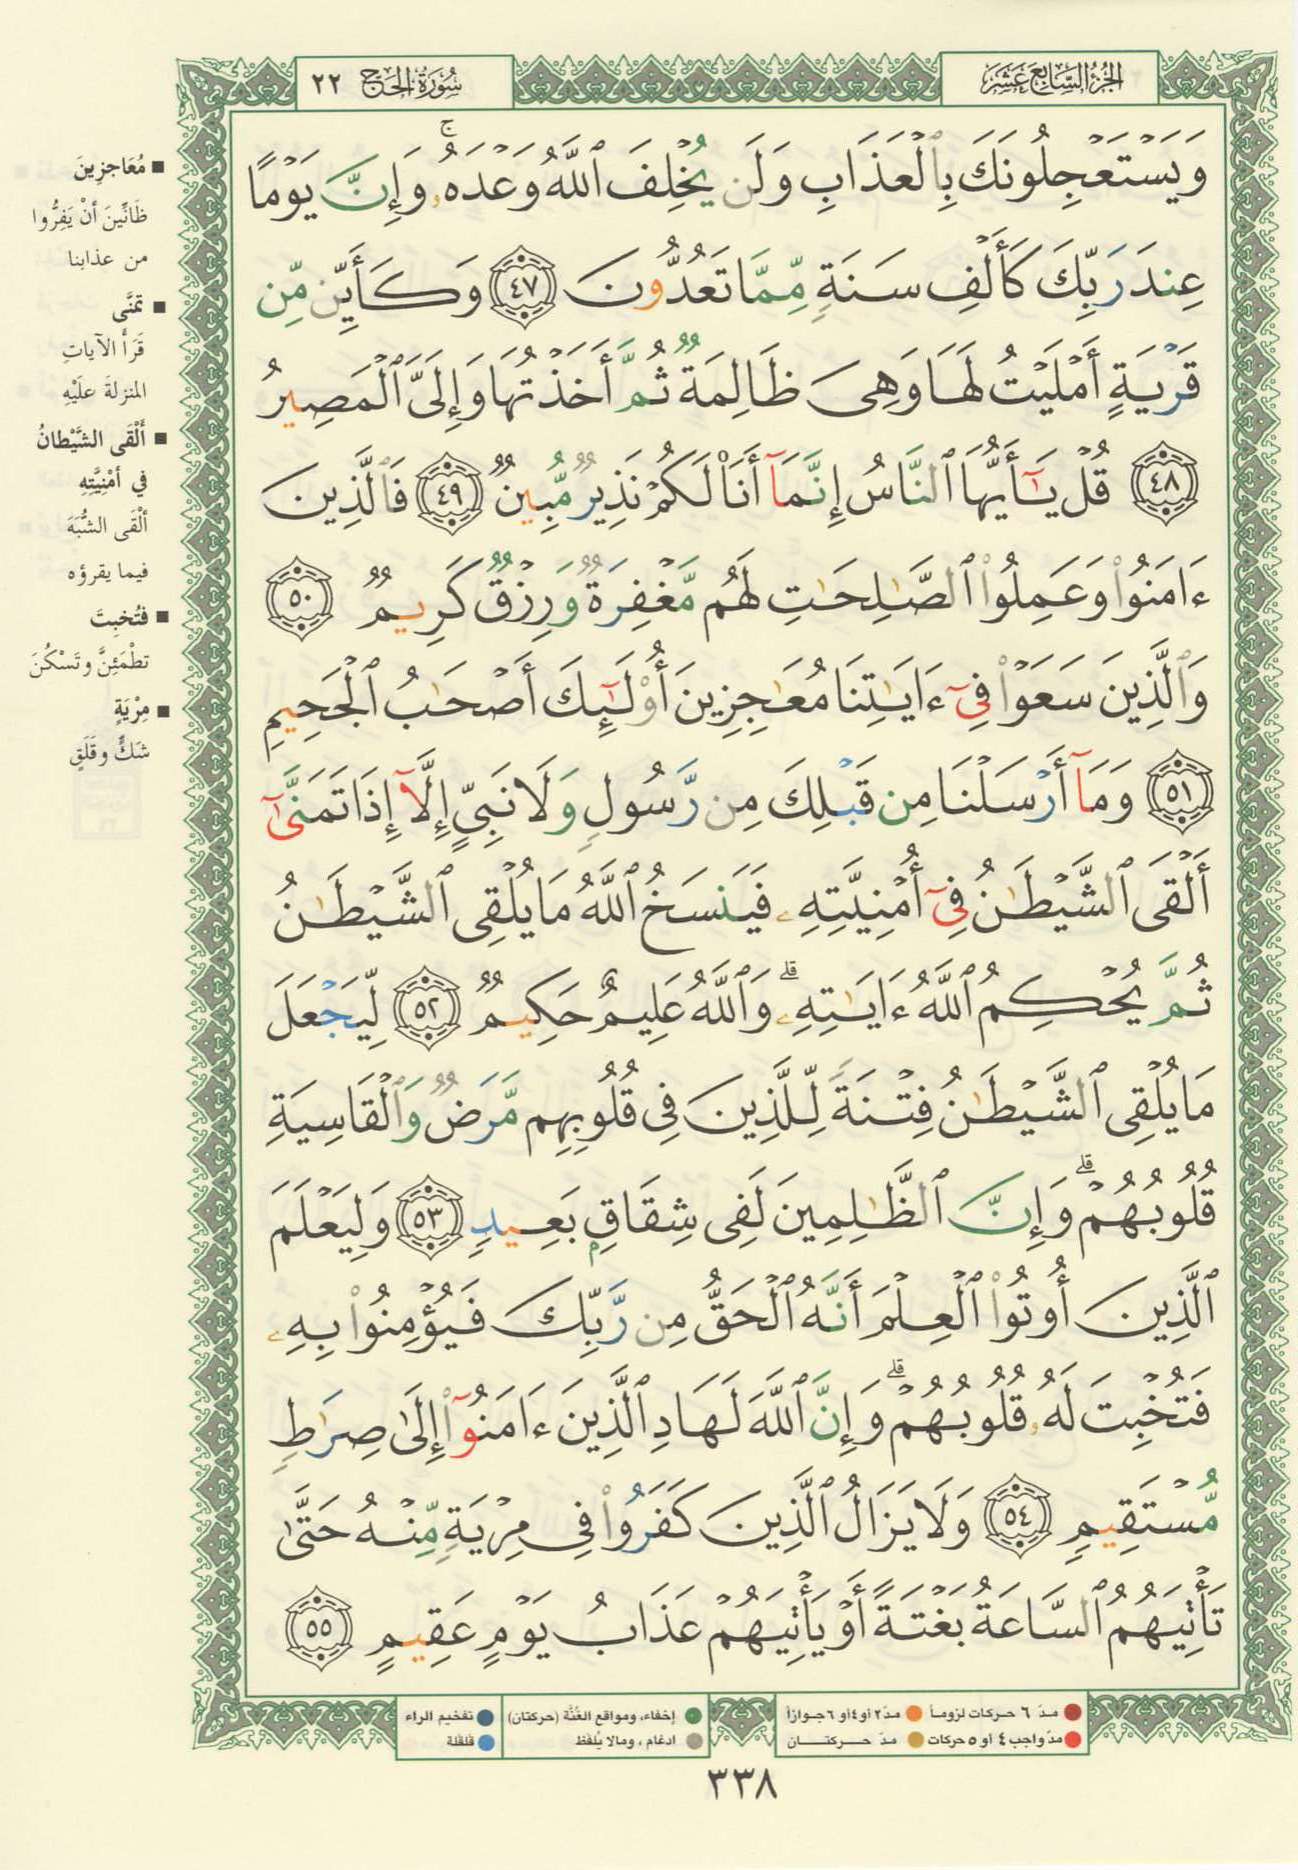 الجزء السابع عشر
سورة الحج ٢٢
وَيَسْتَعْجِلُونَكَ بِٱلْعَذَابِ وَلَن يُخْلِفَ ٱللَّهُ وَعْدَهُۥ ۚ وَإِنَّ يَوْمًا
عِندَ رَبِّكَ كَأَلْفِ سَنَةٍ مِّمَّا تَعُدُّونَ ٤٧ وَكَأَيِّن مِّن
قَرْيَةٍ أَمْلَيْتُ لَهَا وَهِىَ ظَالِمَةٌ ثُمَّ أَخَذْتُهَا وَإِلَىَّ ٱلْمَصِيرُ
٤٨ قُلْ يَٰٓأَيُّهَا ٱلنَّاسُ إِنَّمَآ أَنَا۠ لَكُمْ نَذِيرٌ مُّبِينٌ ٤٩ فَٱلَّذِينَ
ءَامَنُوا۟ وَعَمِلُوا۟ ٱلصَّٰلِحَٰتِ لَهُم مَّغْفِرَةٌ وَرِزْقٌ كَرِيمٌ ٥٠
وَٱلَّذِينَ سَعَوْا۟ فِىٓ ءَايَٰتِنَا مُعَٰجِزِينَ أُو۟لَٰٓئِكَ أَصْحَٰبُ ٱلْجَحِيمِ
٥١ وَمَآ أَرْسَلْنَا مِن قَبْلِكَ مِن رَّسُولٍ وَلَا نَبِىٍّ إِلَّآ إِذَا تَمَنَّىٰٓ
أَلْقَى ٱلشَّيْطَٰنُ فِىٓ أُمْنِيَّتِهِۦ فَيَنسَخُ ٱللَّهُ مَا يُلْقِى ٱلشَّيْطَٰنُ
ثُمَّ يُحْكِمُ ٱللَّهُ ءَايَٰتِهِۦ ۗ وَٱللَّهُ عَلِيمٌ حَكِيمٌ ٥٢ لِّيَجْعَلَ
مَا يُلْقِى ٱلشَّيْطَٰنُ فِتْنَةً لِّلَّذِينَ فِى قُلُوبِهِم مَّرَضٌ وَٱلْقَاسِيَةِ
قُلُوبُهُمْ ۗ وَإِنَّ ٱلظَّٰلِمِينَ لَفِى شِقَاقٍۭ بَعِيدٍ ٥٣ وَلِيَعْلَمَ
ٱلَّذِينَ أُوتُوا۟ ٱلْعِلْمَ أَنَّهُ ٱلْحَقُّ مِن رَّبِّكَ فَيُؤْمِنُوا۟ بِهِۦ
فَتُخْبِتَ لَهُۥ قُلُوبُهُمْ ۗ وَإِنَّ ٱللَّهَ لَهَادِ ٱلَّذِينَ ءَامَنُوٓا۟ إِلَىٰ صِرَٰطٍ
مُّسْتَقِيمٍ ٥٤ وَلَا يَزَالُ ٱلَّذِينَ كَفَرُوا۟ فِى مِرْيَةٍ مِّنْهُ حَتَّىٰ
تَأْتِيَهُمُ ٱلسَّاعَةُ بَغْتَةً أَوْ يَأْتِيَهُمْ عَذَابُ يَوْمٍ عَقِيمٍ ٥٥
■ مُعَاجِزِينَ
ظَانِّينَ أنْ يَفِرُّوا
من عذابنا
■ تَمَنَّى
قَرَأ الآياتِ
المنزلةَ علَيْهِ
■ أَلْقَى الشَّيْطانُ
في أُمْنِيَّتِهِ
ألْقَى الشُّبَهَ
فيما يقرؤه
■ فتُخبِتَ
تطْمَئِنَّ وتَسْكُنَ
■ مِرْيَةٍ
شَكٍّ وقَلَقٍ
مدّ ٦ حركات لزوماً مدّ٢ أو٤أو ٦جوازاً إخفاء، ومواقع الغُنَّة (حركتان) تفخيم الراء
مدّ واجب ٤ أو ٥ حركات مدّ حركتان ادغام ، ومالا يُلفَظ قلقلة
٣٣٨